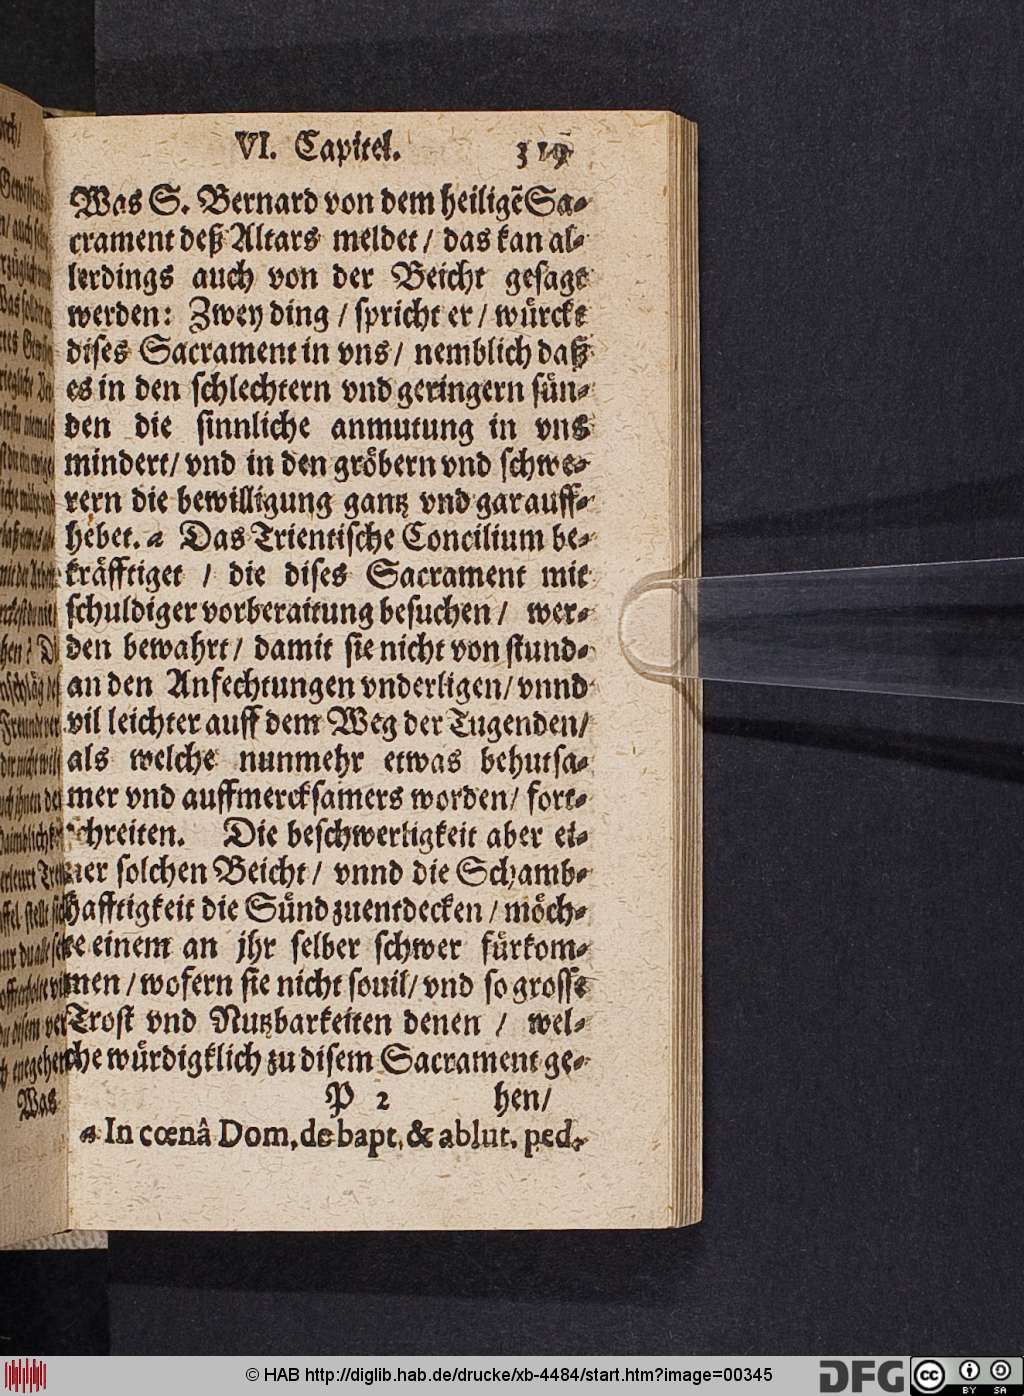 VI. Capitel. 319
Was S. Bernard von dem heiligẽ Sa-
crament deß Altars meldet / das kan al-
lerdings auch von der Beicht gesagt
werden: Zwey ding / spricht er / würckt
dises Sacrament in vns / nemblich daß
es in den schlechtern vnd geringern sün-
den die sinnliche anmutung in vns
mindert / vnd in den gröbern vnd schwe-
rern die bewilligung gantz vnd gar auff-
hebet. a Das Trientische Concilium be-
kräfftiget / die dises Sacrament mit
schuldiger vorberaitung besuchen / wer-
den bewahrt / damit sie nicht von stund-
an den Anfechtungen vnderligen / vnnd
vil leichter auff dem Weg der Tugenden /
als welche nunmehr etwas behutsa-
mer vnd auffmercksamers worden / fort-
schreiten. Die beschwerligkeit aber ei-
ner solchen Beicht / vnnd die Schamb-
hafftigkeit die Sünd zuentdecken / möch-
te einem an jhr selber schwer fürkom-
men / wofern sie nicht souil / vnd so grosse
Trost vnd Nutzbarkeiten denen / wel-
che würdigklich zu disem Sacrament ge-
P 2 hen /
a In cœnâ Dom, de bapt, & ablut. ped.
Was
© HAB http://diglib.hab.de/drucke/xb-4484/start.htm?image=00345
DFG
cc BY SA